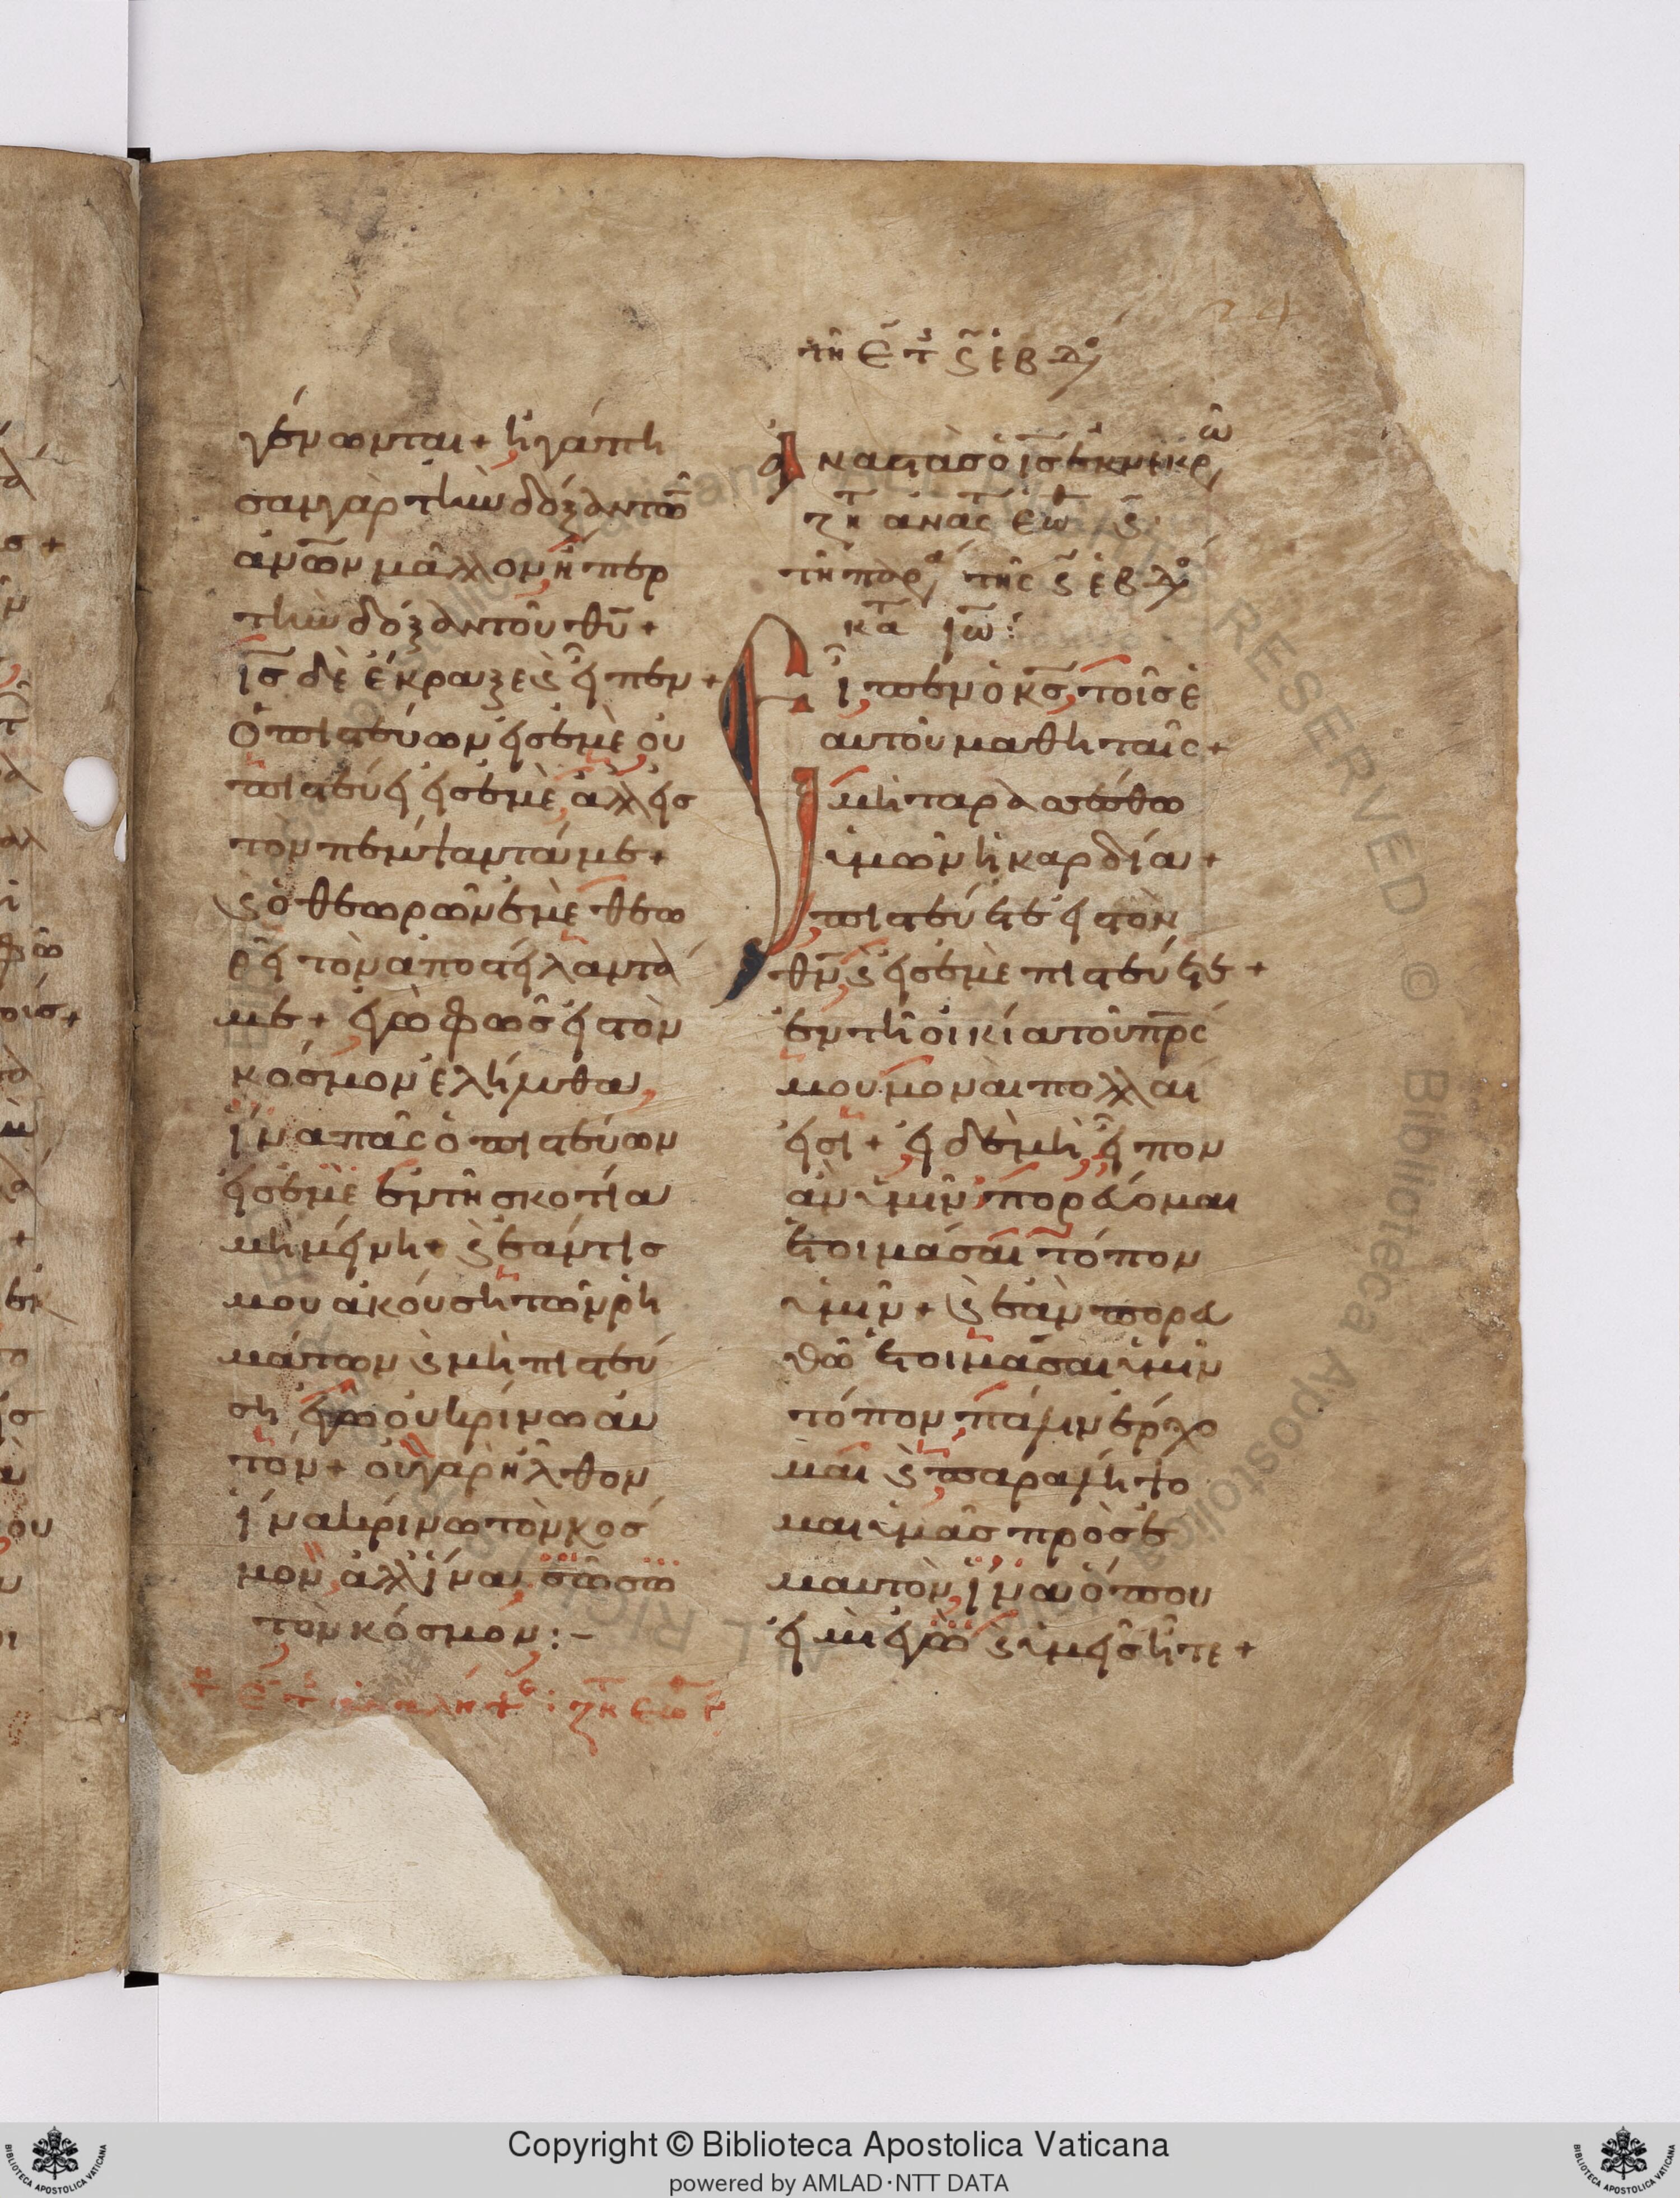 24
τῆ ε̃ τ̅ ς̃ ἑβδο
γένωνται + ἠγάπη
σαν γὰρ τὴν δόξαν τῶ̅
ἀν̅ω̅ν μᾶλλον ἤπερ
τὴν δόξαν τοῦ θῡ +
ι̅ς̅ δὲ ἔκραξε ϛ εἶπεν +
Ὁ πιστεύων εἰς ἐμὲ οὐ
πιστεύει εἰς ἐμὲ, ἀλλ εἰς
τὸν πέμψαντά με +
ϛ ὁ θεωρῶν ἐμὲ θεω
ρεῖ τὸν ἀποστείλαντά
με + ἐγὼ φῶς εἰς τὸν
κόσμον ἐλήλυθα,
ἵνα πᾶς ὁ πιστεύων
εἰς ἐμὲ ἐν τῆ σκοτία
μὴ μείνη + ϛ ἐάν τίς
μου ἀκούση τῶν ῥη
μάτων ϛ μὴ πιστεύ
ση ἐγὼ οὐ κρίνω αυ
τόν + οὐ γὰρ ἦλθον
ἵνα κρίνω τὸν κόσ
μον, ἀλλ ἵνα σώσω
τὸν κόσμον :-
ἀναστὰς ὁ ι̅ς̅ ἐκ νεκρῶ
ζη̅ ἀναστ̅ εω̅θ ς̅
τῆ παρα τῆς ς̃ ἑβδο
κα̅τ ιω̅ :
Εἶπεν ὁ κ̅ς̅, τοῖς ἑ
αυτοῦ μαθηταῖς +
μὴ ταρασσέσθω
ὑμῶν ἡ καρδία +
πιστεύετε εἰς τὸν
θν̅, ϛ εἰς ἐμὲ πιστεύετε +
ἐν τῆ οἰκία τοῦ πρ̅ς
μου μοναι πολλαί
εἰσι + εἰ δὲ μὴ, εἶπον
ἀν ὑμῖν πορεύομαι
ἑτοιμάσαι τόπον
ὑμῖν + ϛ ἐὰν πορευ
θῶ ἑτοιμάσαι ὑμῖν
τόπον πάλιν ἔρχο
μαι ϛ παραλήψο
μαι ὑμᾶς πρὸς ἐ
μαυτὸν, ἵνα ὅπου
εἰμὶ ἐγὼ ϛ ὑμεῖς ἦτε +
Copyright © Biblioteca Apostolica Vaticana
powered by AMLAD・NTT DATA